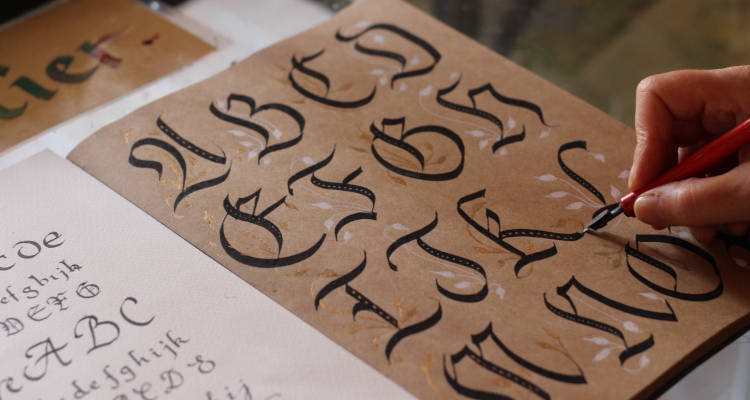 ier
A B C D
E F G H
I J K L
M N O
cde
efghijk
DEFG
ABC
defghijk